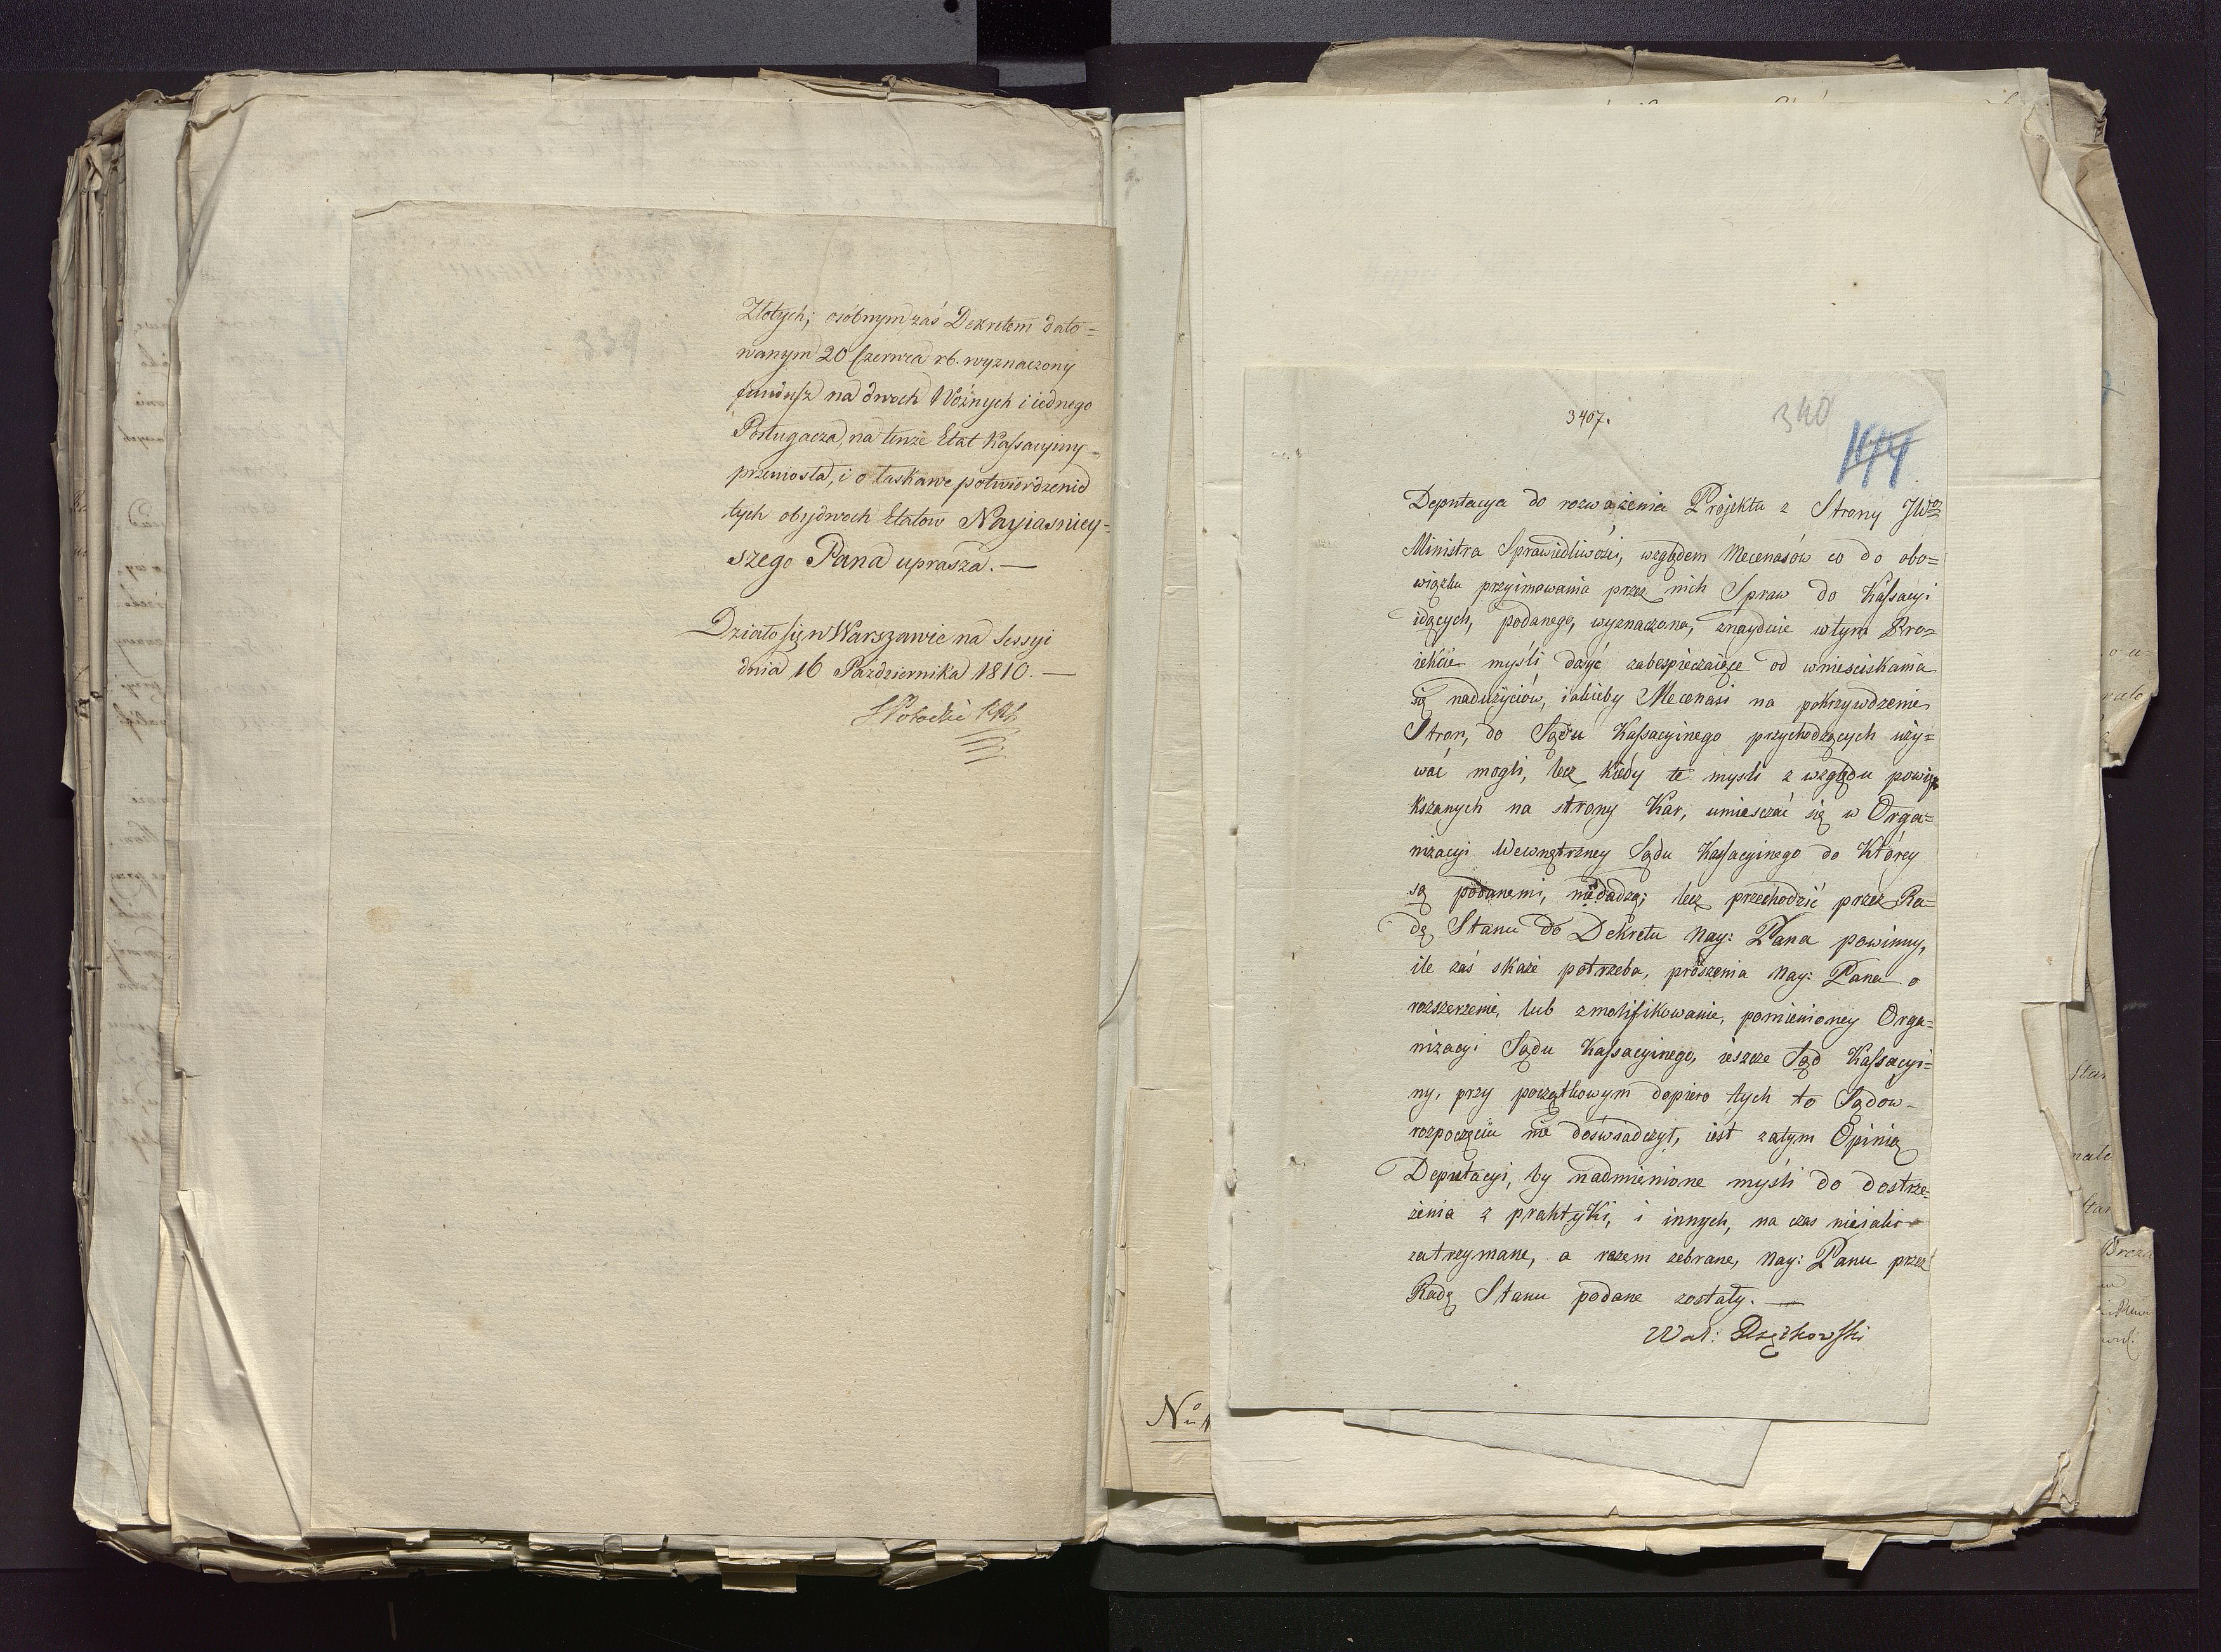 Złotych; osóbnym zaś Dekretem dato=
wanym 20 Czerwca r.b. wyznaczony
fundusz na dwoch Woźnych i iednego
Posługacza, na tenże Etat Kassacyiny
przeniosła, i o łaskawe potwierdzenie
tych obydwoch Etatow Nayiasniey=
szego Pana uprasza. —
Działo się w Warszawie na Sessyi
dnia 16 Października 1810. —
Potocki
3407.
340
Deputacya do rozważenia Projektu z Strony JWo
Ministra Sprawiedliwości, względem Mecenasów co do obo=
wiązku przyimowania przez nich Spraw do Kassacyi
idących, podanego, wyznaczona, znayduie w tym Pro=
iekcie myśli dążyć zabespieczaiące od wniesciskania
się nadużyciów, iakieby Mecenasi na pokrzywdzenie
Stron, do Sądu Kassacyinego przychodzących uży=
wać mogli, lecz kiedy te myśli z względu powię
kszanych na strony Kar, umieszczać się w Orga=
nizacyi Wewnętrzney Sądu Kassacyinego do Którey
są podanemi, niedadzą; lecz przechodzić przez Ra=
dę Stanu do Dekretu Nay: Pana powinny,
ile zaś okaże potrzeba, proszenia Nay: Pana o
rozszerzenie, lub zmolifikowanie, pomienioney Orga=
nizacyi Sądu Kassacyinego, ieszcze Sąd Kassacyi=
ny, przy początkowym dopiero tych to Sądow
rozpoczęciu nie doświadczył, iest zatym Opinią
Deputacyi, by nadmienione myśli do dostrze=
żenia z praktyki, i innych, na czas nieiaki
zatrzymane, a razem zebrane, Nay: Panu przez
Radę Stanu podane zostały. —
Wal:
No